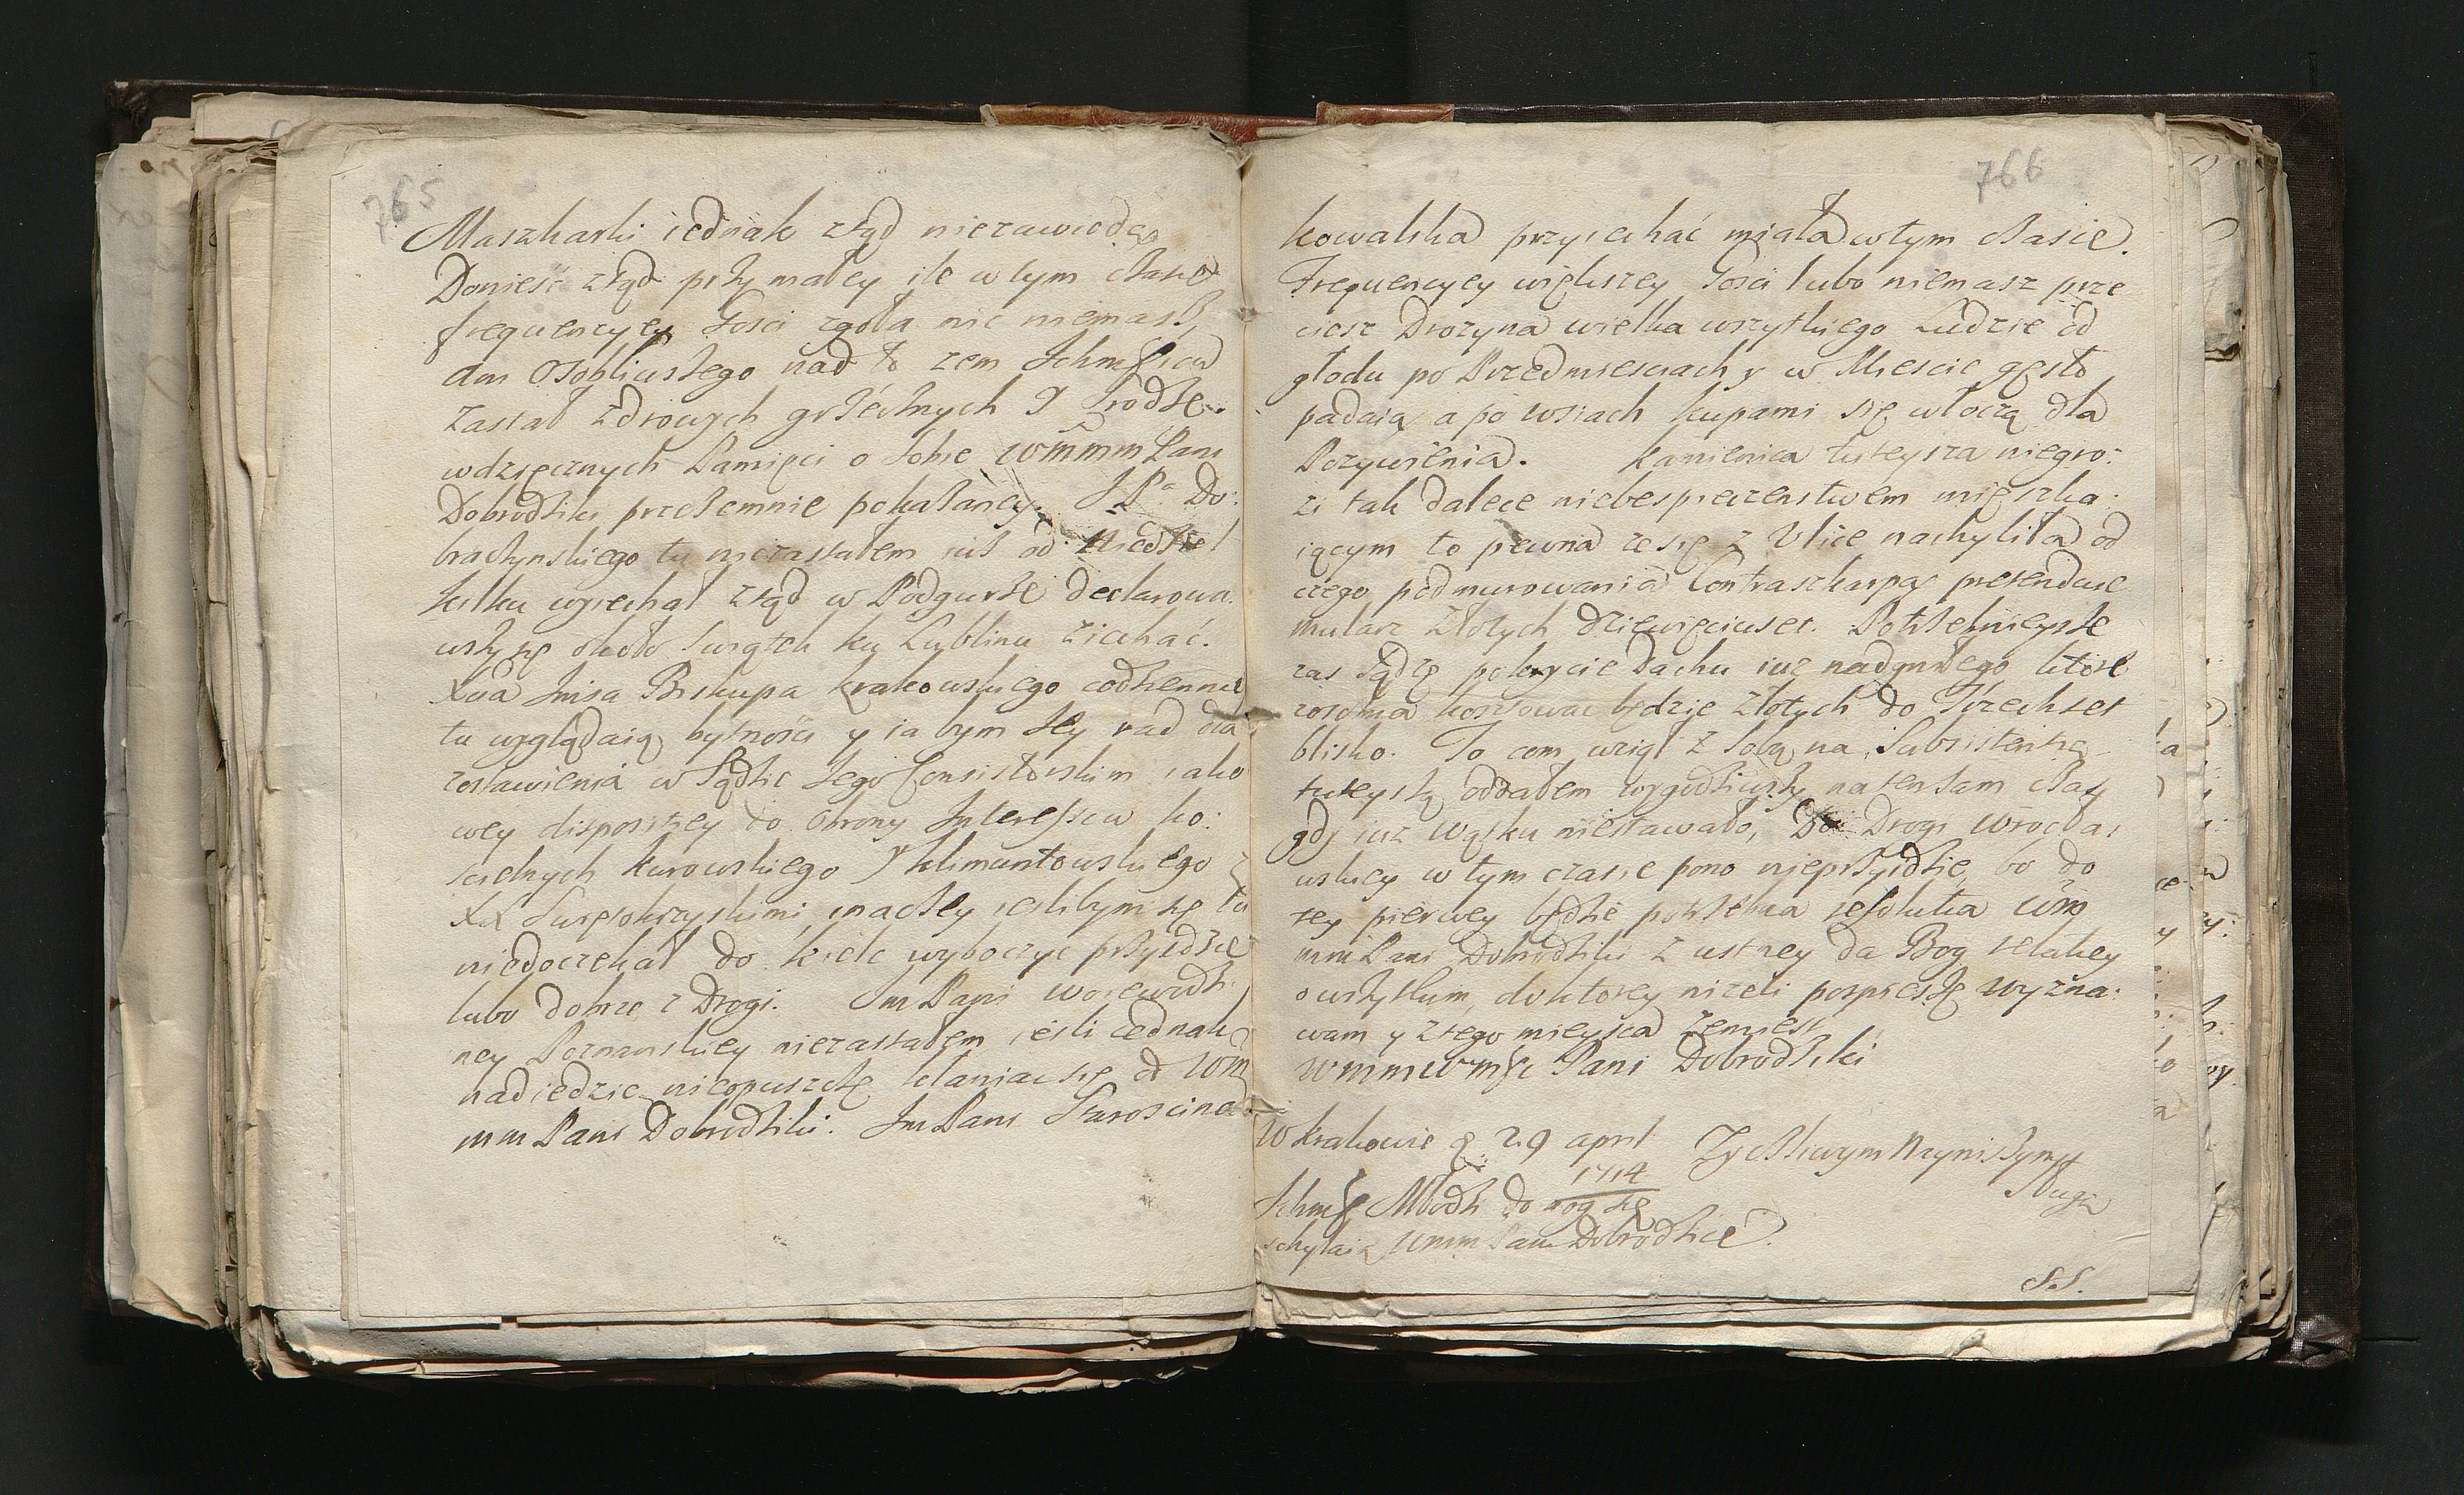 765
Maszkarki iednak ztąd niezawiodę
Donieść ztąd przy małey ile w tym czasie
frequencyey Gosci zgoła nic niemasz,
ani osobliwszego nad to zem Ichmsciow
zastał zdrowych grzecznych y srodze
wdzięcznych Pamięci o sobie wmmm Pani
Dobrodziki przezemnie pokazaney. J P. Do:
braczynskiego tu niezastałem iuż od Niedziel
kilku wyiechał ztąd w Podgurze declarowa
wszy się około Swiątek ku Lublinu ziechać.
Xcia Jmsa Biskupa krakowskiego codziennie
tu wyglądaią bytnosci y ia bym iey rad dla
zostawienia w Sądzie Jego Consistorskim iako
wey dispositiey do obrony Interessow ko:
scielnych kurowskiego y klimuntowskiego z
XX Swiętokrzyskimi, inaczey ieslibym się tu
niedoczekał do kielc wyboczyc przyidzie
lubo dobrze z Drogi. Jm Pani Woiewodzi
ney Poznanskiey niezastałem iesli iednak
nadiedzie nieopuszczę kłaniac się od Wm
mm Pani Dobrodziki. Jm Pani Starościna
766
kowalska przyiechać miała w tym czasie.
Frequencyey większey Gosci lubo niemasz prze
ciesz Drozyna wielka wszytkiego Ludzie od
głodu po Przedmiesciach y w Miescie gęsto
padaią, a po wsiach kupami się włoczą dla
Pozywienia. Kamienica tuteysza niegro:
zi tak dalece niebespieczenstwem mięszka:
iącym to pewna ze się z Ulice nachyliła od
czego podmurowania Contraszkarpą pretenduie
mularz Złotych dziewięciuset. Potrzebnieysze
zas sądzę pokrycie Dachu iuz nadgniłego ktore
kosztowac będzie złotych do Trzechset
blisko. To com wziął z sobą na Subsistentią
tuteyszą oddałem wygodziwszy na ten sam czas
gdy iuz wątku niestawało, Do Drogi Wrocła:
wskiey w tym czasie pono nieprzyidzie, bo do
tey pierwey będzie potrzebna resolutia Wm
mm Pani Dobrodziki z ustney da Bog relatiey
o wszytkim, do ktorey nizeli pospieszę wyzna:
wam y z tego mieysca zemiest
wmmwmsc Pani Dobrodziki
W krakowie d. 29 april
1714
Zyczliwym Naynizszym
Sługą
Ichmsc Młodzi do nog się
schylaią Wmm Pani Dobrodzice.
S.S.